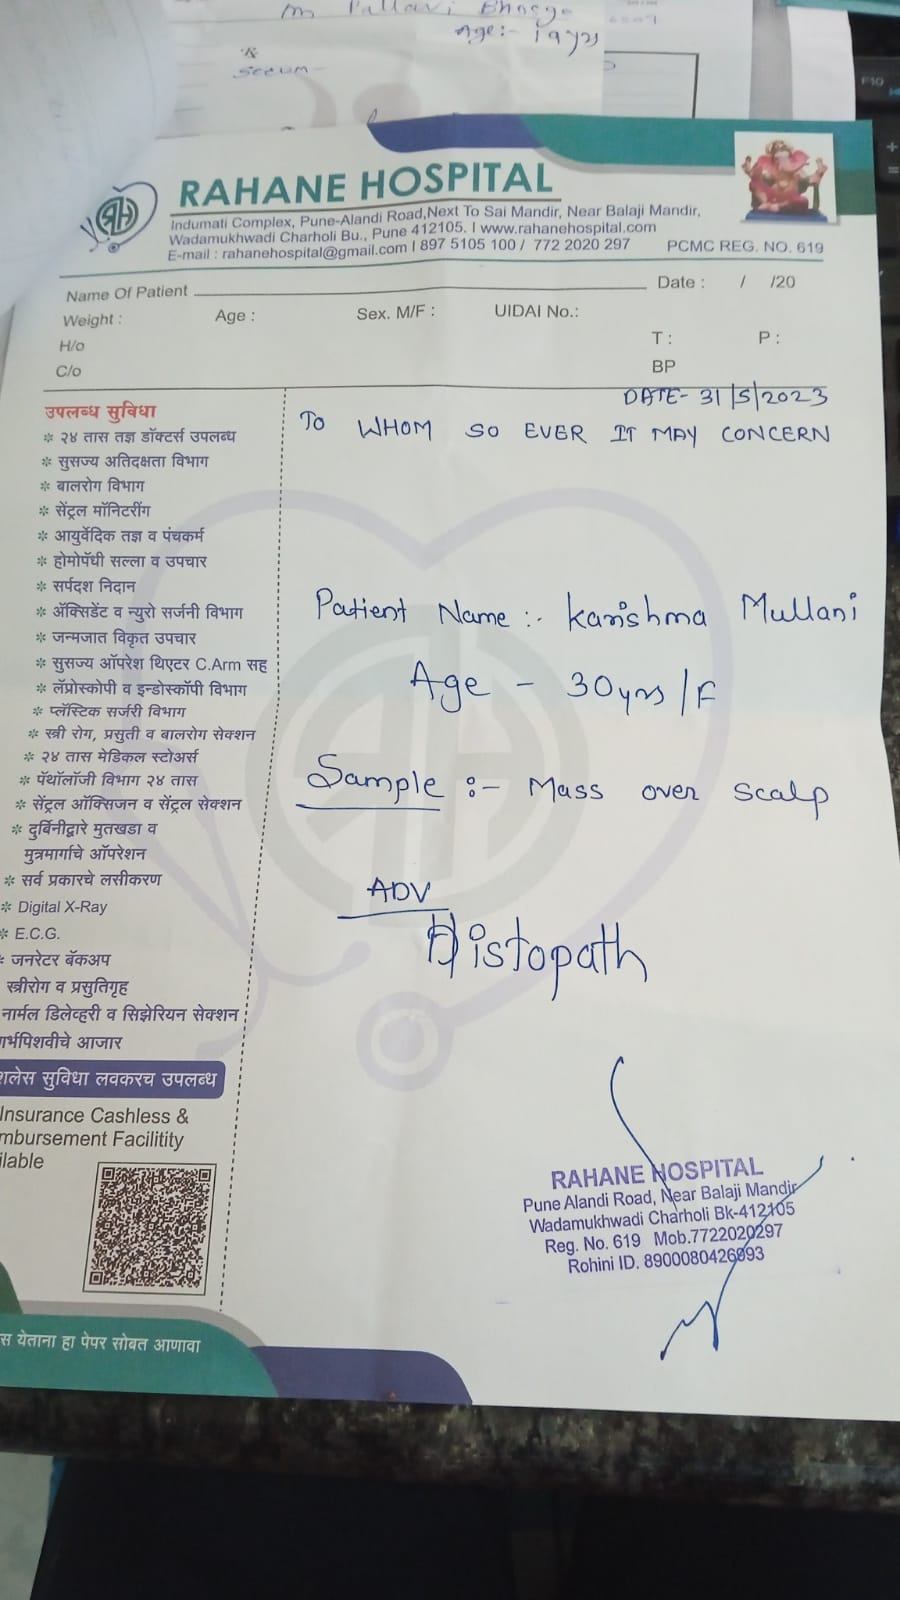 Age:- 19yrs
Serum-
F10
RAHANE HOSPITAL
Indumati Complex, Pune-Alandi Road,Next To Sai Mandir, Near Balaji Mandir,
Wadamukhwadi Charholi Bu., Pune 412105. I www.rahanehospital.com
E-mail : rahanehospital@gmail.com I 897 5105 100 / 772 2020 297 PCMC REG. NO. 619
Name Of Patient Date : / /20
Weight : Age : Sex. M/F : UIDAI No.:
H/o T : P :
C/o BP
DATE- 31/5/2023
TO WHOM SO EVER IT MAY CONCERN
Patient Name :- Karishma Mullani
Age - 30yrs/F
Sample :- Mass over scalp
ADV
Histopath
उपलब्ध सुविधा
* २४ तास तज्ञ डॉक्टर्स उपलब्ध
* सुसज्य अतिदक्षता विभाग
* बालरोग विभाग
* सेंट्रल मॉनिटरींग
* आयुर्वेदिक तज्ञ व पंचकर्म
* होमोपॅथी सल्ला व उपचार
* सर्पदश निदान
* ॲक्सिडेंट व न्युरो सर्जनी विभाग
* जन्मजात विकृत उपचार
* सुसज्य ऑपरेश थिएटर C.Arm सह
* लॅप्रोस्कोपी व इन्डोस्कॉपी विभाग
* प्लॅस्टिक सर्जरी विभाग
* स्त्री रोग, प्रसुती व बालरोग सेक्शन
* २४ तास मेडिकल स्टोअर्स
* पॅथॉलॉजी विभाग २४ तास
* सेंट्रल ऑक्सिजन व सेंट्रल सेक्शन
* दुर्बिनीद्वारे मुतखडा व
मुत्रमार्गाचे ऑपरेशन
* सर्व प्रकारचे लसीकरण
* Digital X-Ray
* E.C.G.
* जनरेटर बॅकअप
स्त्रीरोग व प्रसुतिगृह
नार्मल डिलेव्हरी व सिझेरियन सेक्शन
गर्भपिशवीचे आजार
शलेस सुविधा लवकरच उपलब्ध
Insurance Cashless &
mbursement Facilitity
ilable
स येताना हा पेपर सोबत आणावा
RAHANE HOSPITAL
Pune Alandi Road, Near Balaji Mandir
Wadamukhwadi Charholi Bk-412105
Reg. No. 619 Mob.7722020297
Rohini ID. 8900080426993